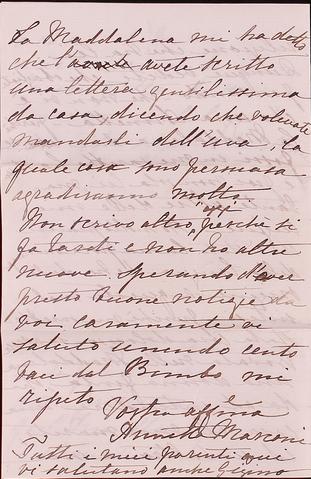 La Maddalena mi ha detto
che l' avete scritto
una lettera gentilissima
da casa, dicendo che volevate
mandarli dell'uva, la
quale cosa sono persuasa
agradiranno molto.
Non scrivo altro, oggi perchè si
fa tardi e non ho altre
nuove. Sperando d'aver
presto buone notizie da
voi caramente vi
saluto unendo cento
baci dal Bimbo mi
ripeto
Vostra affma
Marconi
Tutti i miei parenti qui
vi salutano anche Gigino